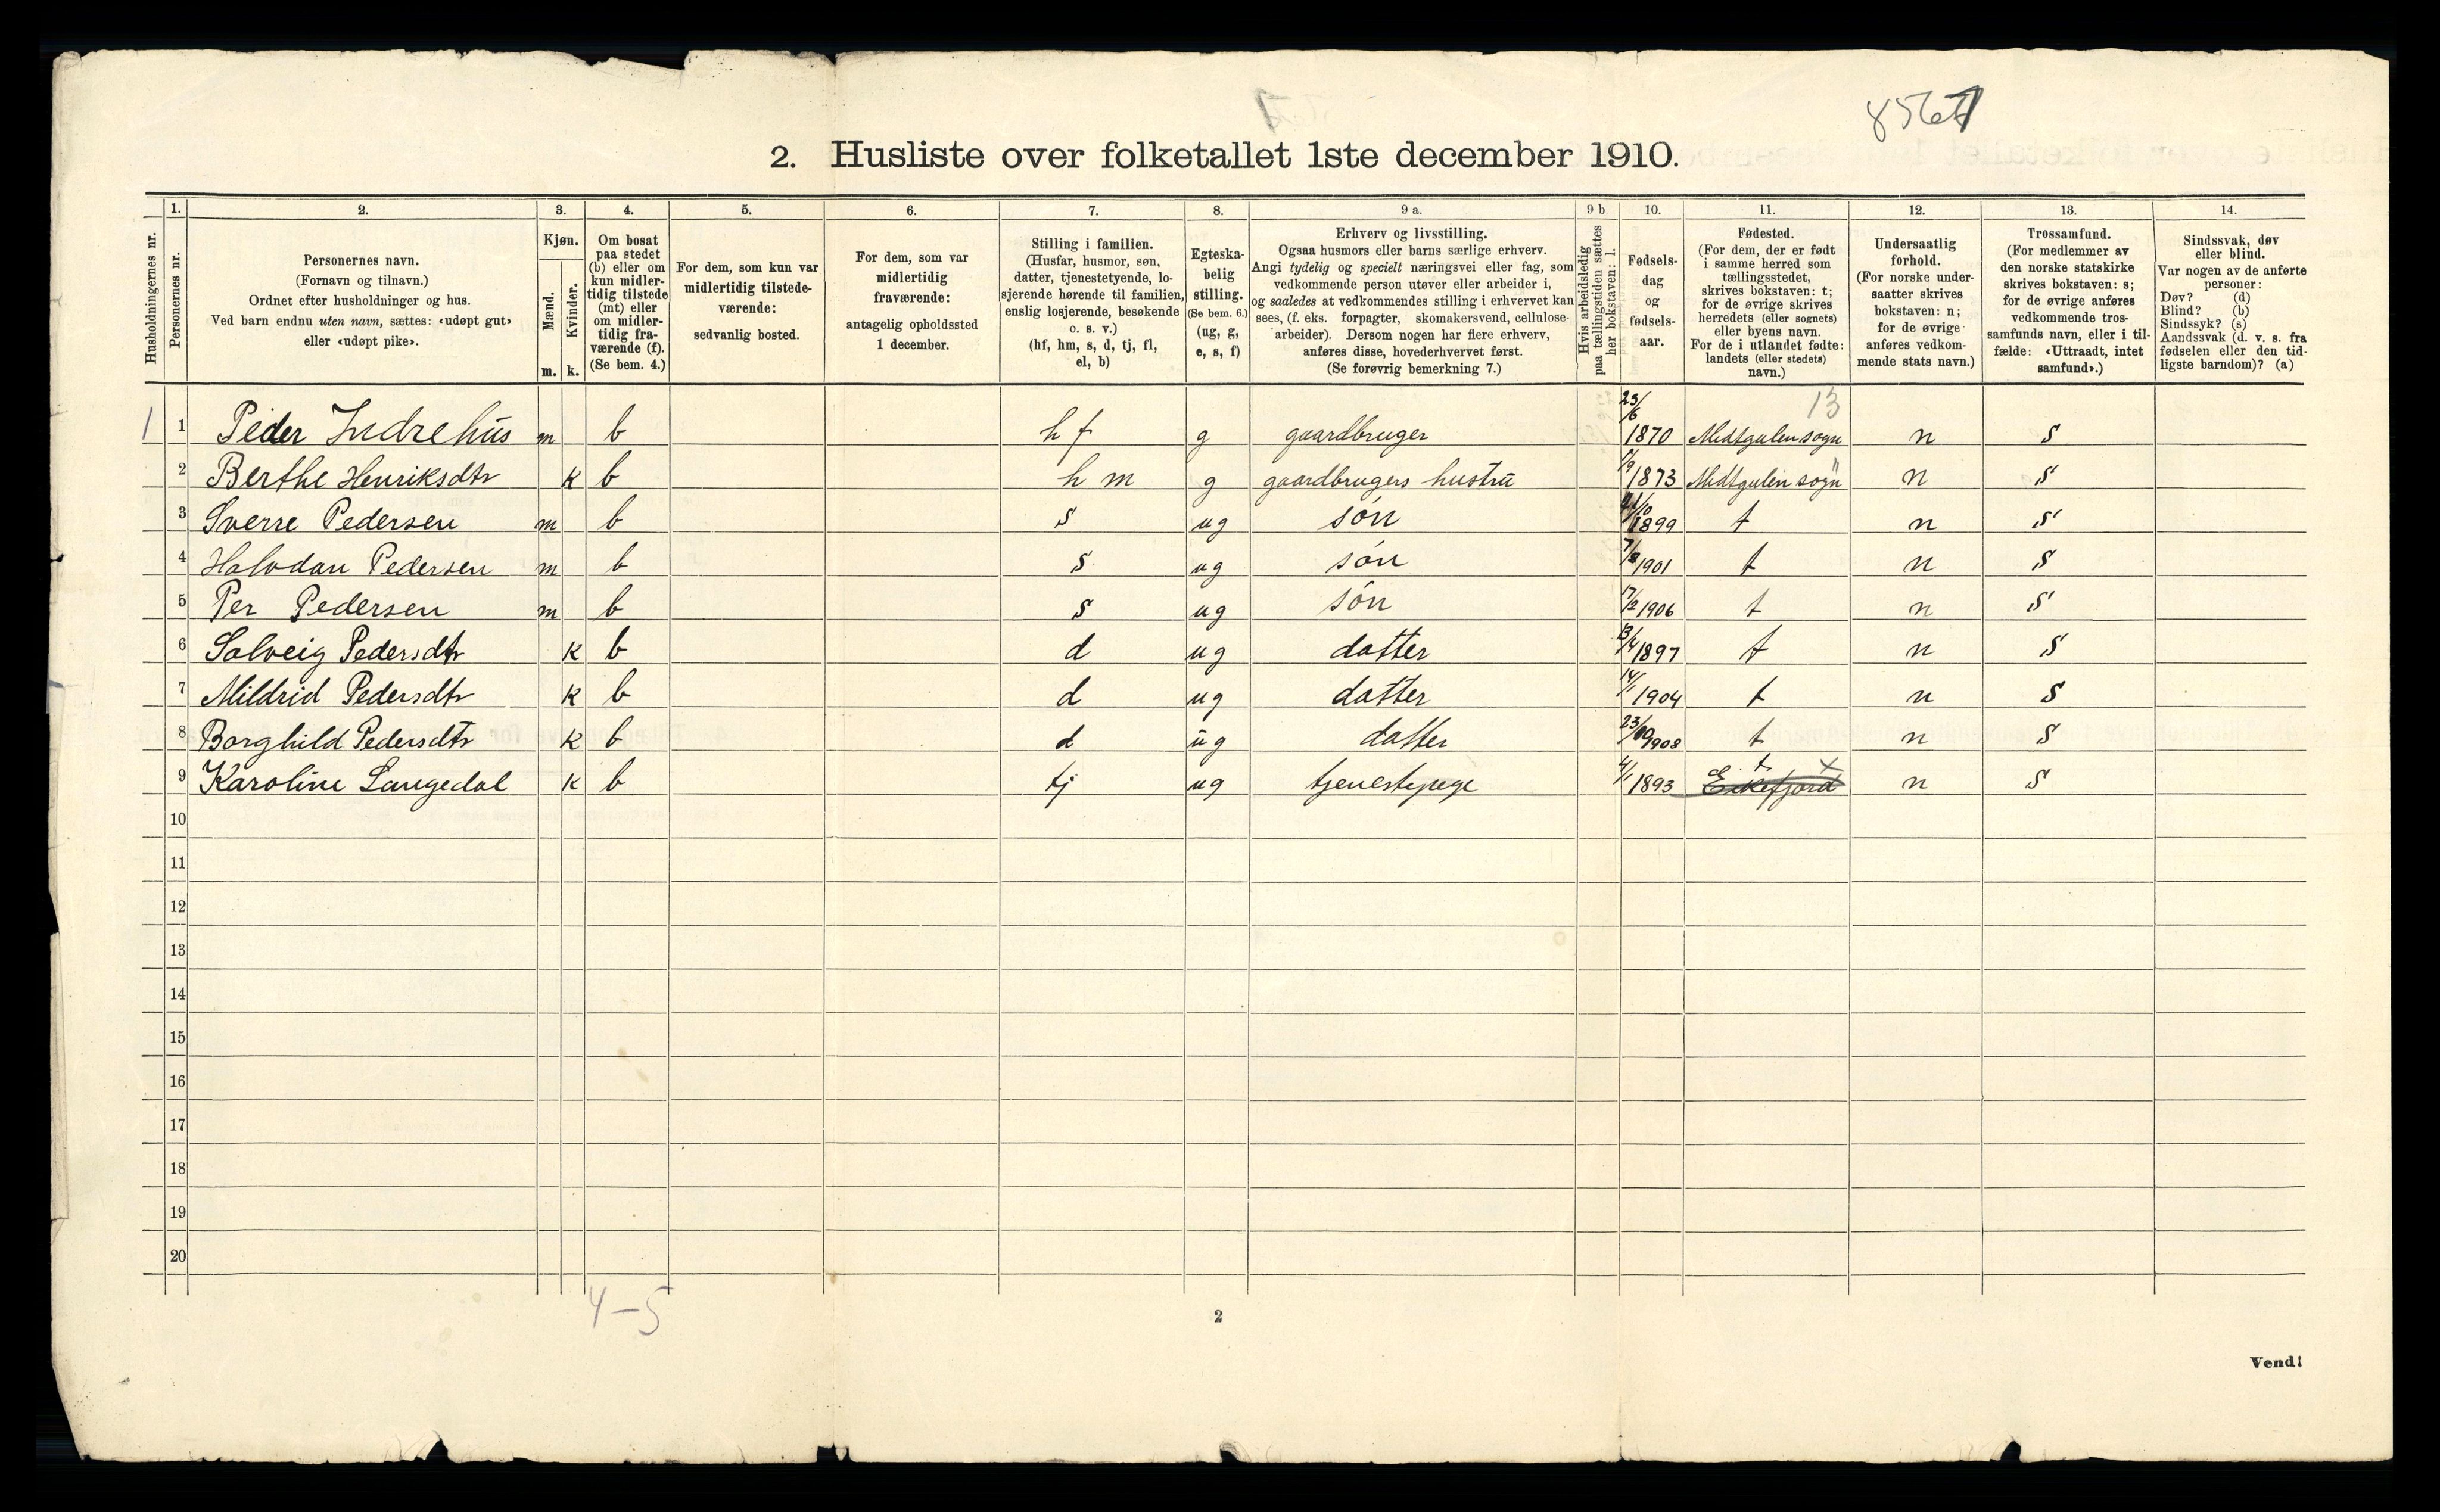 2. Husliste over folketallet 1ste december 1910.
Husholdningernes nr.
1.
Personernes nr.
2.
Personernes navn.
(Fornavn og tilnavn.)
Ordnet efter husholdninger og hus.
Ved barn endnu uten navn, sættes: «udøpt gut»
eller «udøpt pike».
3.
Kjøn.
Mænd.
Kvinder.
m. k.
4.
Om bosat
paa stedet
(b) eller om
kun midler-
tidig tilstede
(mt) eller
om midler-
tidig fra-
værende (f).
(Se bem. 4.)
5.
For dem, som kun var
midlertidig tilstede-
værende:
sedvanlig bosted.
6.
For dem, som var
midlertidig
fraværende:
antagelig opholdssted
1 december.
7.
Stilling i familien.
(Husfar, husmor, søn,
datter, tjenestetyende, lo-
sjerende hørende til familien,
enslig losjerende, besøkende
o. s. v.)
(hf, hm, s, d, tj, fl,
el, b)
8.
Egteska-
belig
stilling.
(Se bem. 6.)
(ug, g,
e, s, f)
9 a.
Erhverv og livsstilling.
Ogsaa husmors eller barns særlige erhverv.
Angi tydelig og specielt næringsvei eller fag, som
vedkommende person utøver eller arbeider i,
og saaledes at vedkommendes stilling i erhvervet kan
sees, (f. eks. forpagter, skomakersvend, cellulose-
arbeider). Dersom nogen har flere erhverv,
anføres disse, hovederhvervet først.
(Se forøvrig bemerkning 7.)
9 b
Hvis arbeidsledig
paa tællingstiden sættes
her bokstaven: l.
10.
Fødsels-
dag
og
fødsels-
aar.
11.
Fødested.
(For dem, der er født
i samme herred som
tællingsstedet,
skrives bokstaven: t;
for de øvrige skrives
herredets (eller sognets)
eller byens navn.
For de i utlandet fødte:
landets (eller stedets)
navn.)
12.
Undersaatlig
forhold.
(For norske under-
saatter skrives
bokstaven: n;
for de øvrige
anføres vedkom-
mende stats navn.)
13.
Trossamfund.
(For medlemmer av
den norske statskirke
skrives bokstaven: s;
for de øvrige anføres
vedkommende tros-
samfunds navn, eller i til-
fælde: «Uttraadt, intet
samfund».)
14.
Sindssvak, døv
eller blind.
Var nogen av de anførte
personer:
Døv? (d)
Blind? (b)
Sindssyk? (s)
Aandssvak (d. v. s. fra
fødselen eller den tid-
ligste barndom)? (a)
13
1 1 Peder Indrehus m b h f g gaardbruger 23/6 1870 Midtgulen sogn n s
2 Berthe Henriksdtr k b h m g gaardbrugers hustru 1873 Midtgulen sogn n s
3 Sverre Pedersen m b s ug són 1899 t n s
4 Halvdan Pedersen m b s ug són 1901 t n s
5 Per Pedersen m b s ug són 17/2 1906 t n s
6 Solveig Pedersdtr k b d ug datter 13/4 1897 t n s
7 Mildrid Pedersdtr k b d ug datter 14/1 1904 t n s
8 Borghild Pedersdtr k b d ug datter 1908 t n s
9 Karoline Langedal k b tj ug tjenestepege 4/1 1893 Eikefjord t x n s
10
11
12
13
14
15
16
17
18
19
20
4-5
2
Vend!